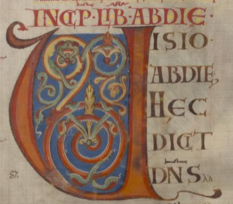 INCIP · LIB · ABDIE ·
VISIO
ABDIE,
HEC
DICIT
DNS